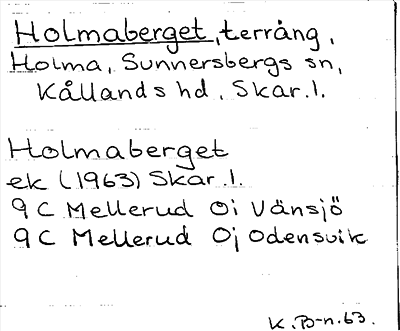 Holmaberget, terräng,
Holma, Sunnersbergs sn,
Kållands hd, Skar. l.
Holmaberget
ek (1963) Skar. l.
9 C Mellerud 0i Vänsjö
9 C Mellerud 0j Odensvik
K. B-n. 63.